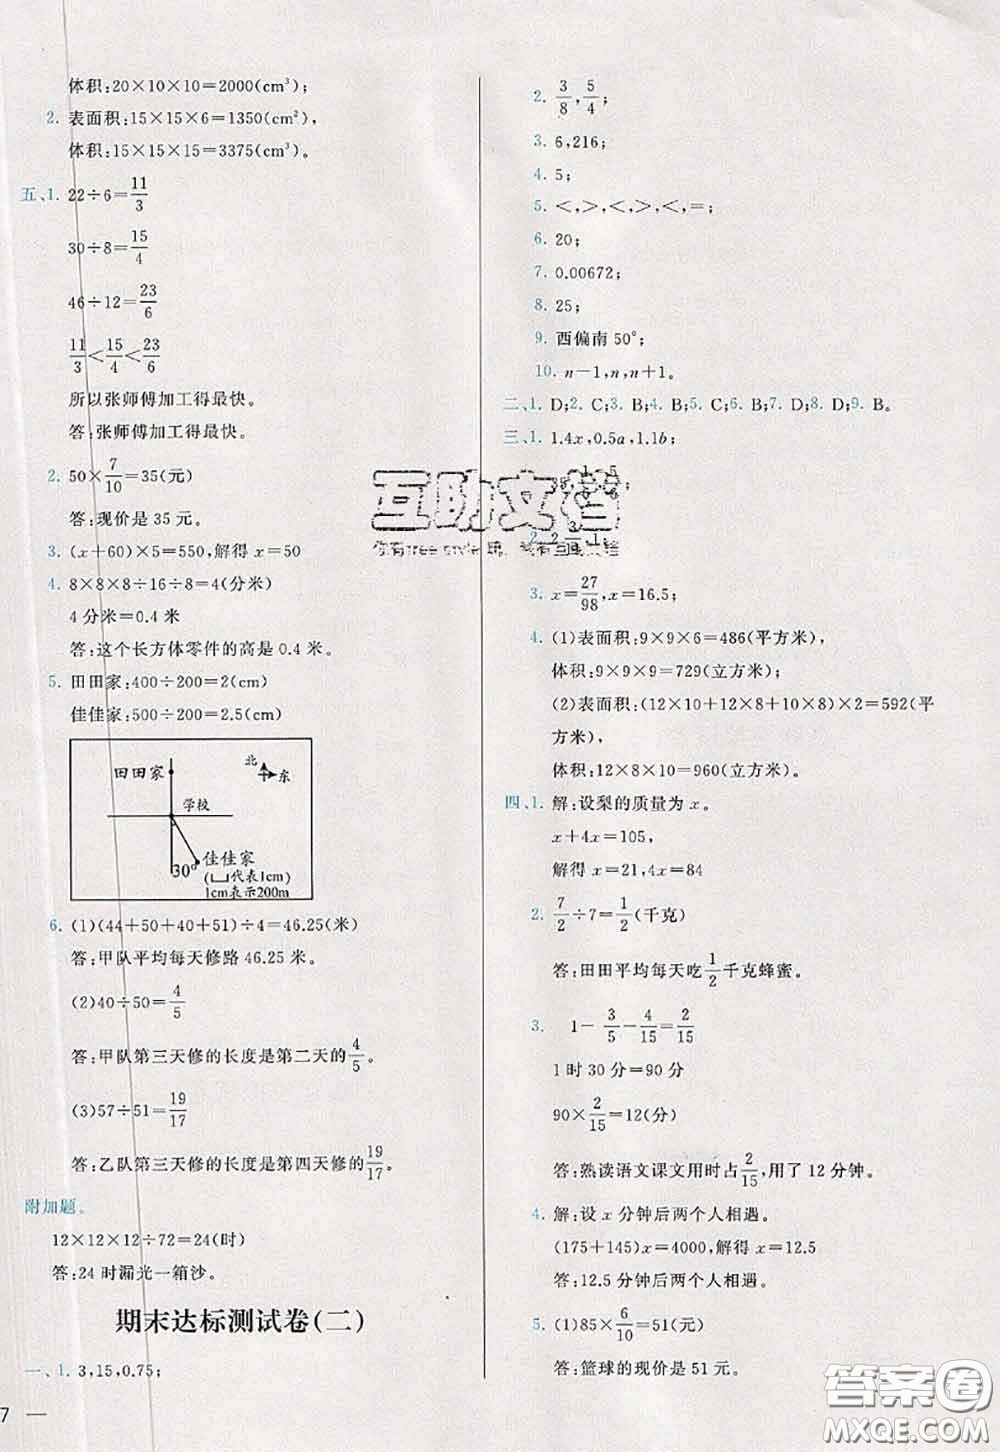 体积:20×10×10=2000(cm³);
2. 表面积:15×15×6=1350(cm²),
体积:15×15×15=3375(cm³)。
五、1. 22÷6=11/3
30÷8=15/4
46÷12=23/6
11/3<15/4<23/6
所以张师傅加工得最快。
答:张师傅加工得最快。
2. 50×7/10=35(元)
答:现价是 35 元。
3. (x+60)×5=550,解得 x=50
4. 8×8×8÷16÷8=4(分米)
4 分米=0.4 米
答:这个长方体零件的高是 0.4 米。
5. 田田家:400÷200=2(cm)
佳佳家:500÷200=2.5(cm)
北
田田家
东
学校
30° 佳佳家
(代表1cm)
1cm表示200m
6. (1)(44+50+40+51)÷4=46.25(米)
答:甲队平均每天修路 46.25 米。
(2)40÷50=4/5
答:甲队第三天修的长度是第二天的4/5。
(3)57÷51=19/17
答:乙队第三天修的长度是第四天修的19/17。
附加题。
12×12×12÷72=24(时)
答:24 时漏光一箱沙。
期末达标测试卷(二)
一、1. 3,15,0.75;
7 —
2. 3/8,5/4;
3. 6,216;
4. 5;
5. <,>,<,>,<,=;
6. 20;
7. 0.00672;
8. 25;
9. 西偏南 50°;
10. n−1,n,n+1。
二、1. D;2. C;3. B;4. B;5. C;6. B;7. D;8. D;9. B。
三、1. 1.4x,0.5a,1.1b;
互助文档
2.
3. x=27/98,x=16.5;
4. (1)表面积:9×9×6=486(平方米),
体积:9×9×9=729(立方米);
(2)表面积:(12×10+12×8+10×8)×2=592(平
方米),
体积:12×8×10=960(立方米)。
四、1. 解:设梨的质量为 x。
x+4x=105,
解得 x=21,4x=84
2. 7/2÷7=1/2(千克)
答:田田平均每天吃1/2千克蜂蜜。
3. 1−3/5−4/15=2/15
1 时 30 分=90 分
90×2/15=12(分)
答:熟读语文课文用时占2/15,用了 12 分钟。
4. 解:设 x 分钟后两个人相遇。
(175+145)x=4000,解得 x=12.5
答:12.5 分钟后两个人相遇。
5. (1)85×6/10=51(元)
答:篮球的现价是 51 元。
答案圈
MXQE.COM